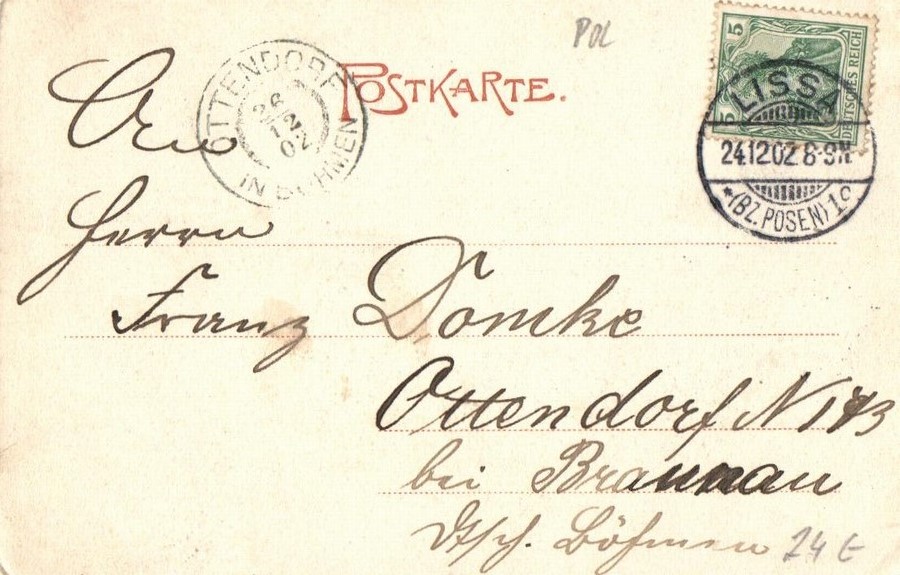 POL
POSTKARTE.
5
5
DEUTSCHES REICH
LISSA
24.12.02.8-9N.
*(BZ. POSEN) 1c
OTTENDORF
02
IN BÖHMEN
An
Herrn
Franz Domke
Ottendorf N 173
bei Braunau
Dtsch. Böhmen
24 €